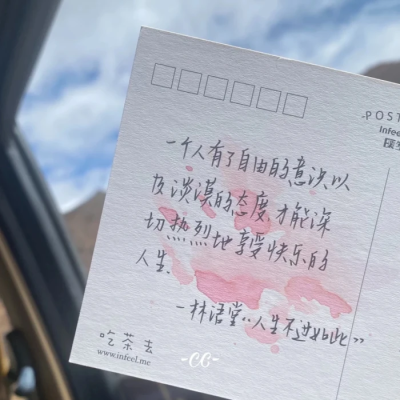 POST
Infeel
一个人有了自由的意识以
及淡漠的态度,才能深
切热烈地享受快乐的
人生.
—林语堂“人生不过如此”
吃茶去
www.infeel.me
-CC-